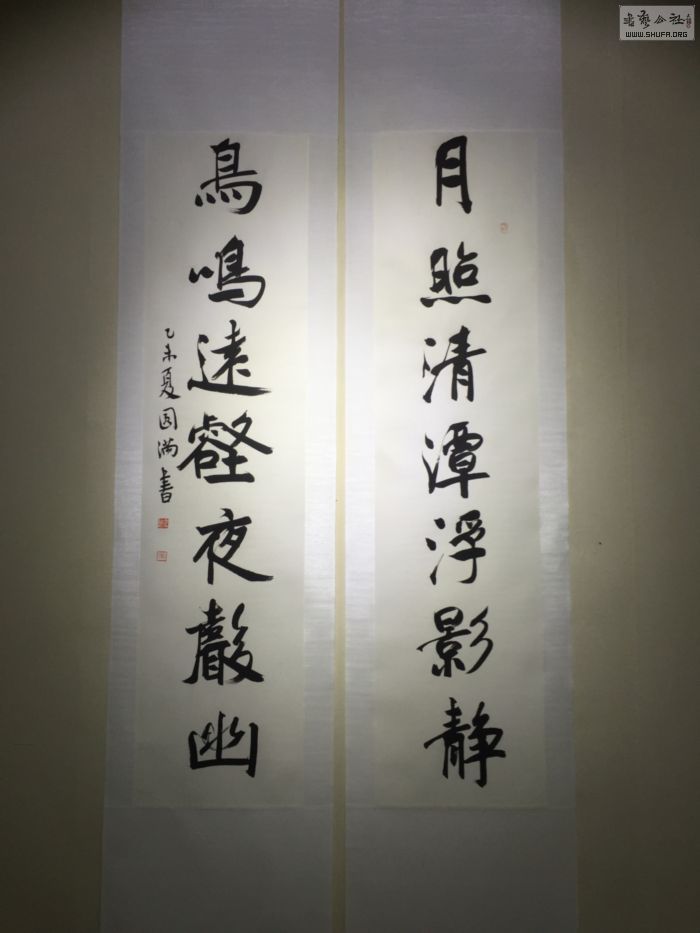 月照清潭浮影静
鳥鳴遠壑夜聲幽
乙未夏圆满書
書藝公社
WWW.SHUFA.ORG